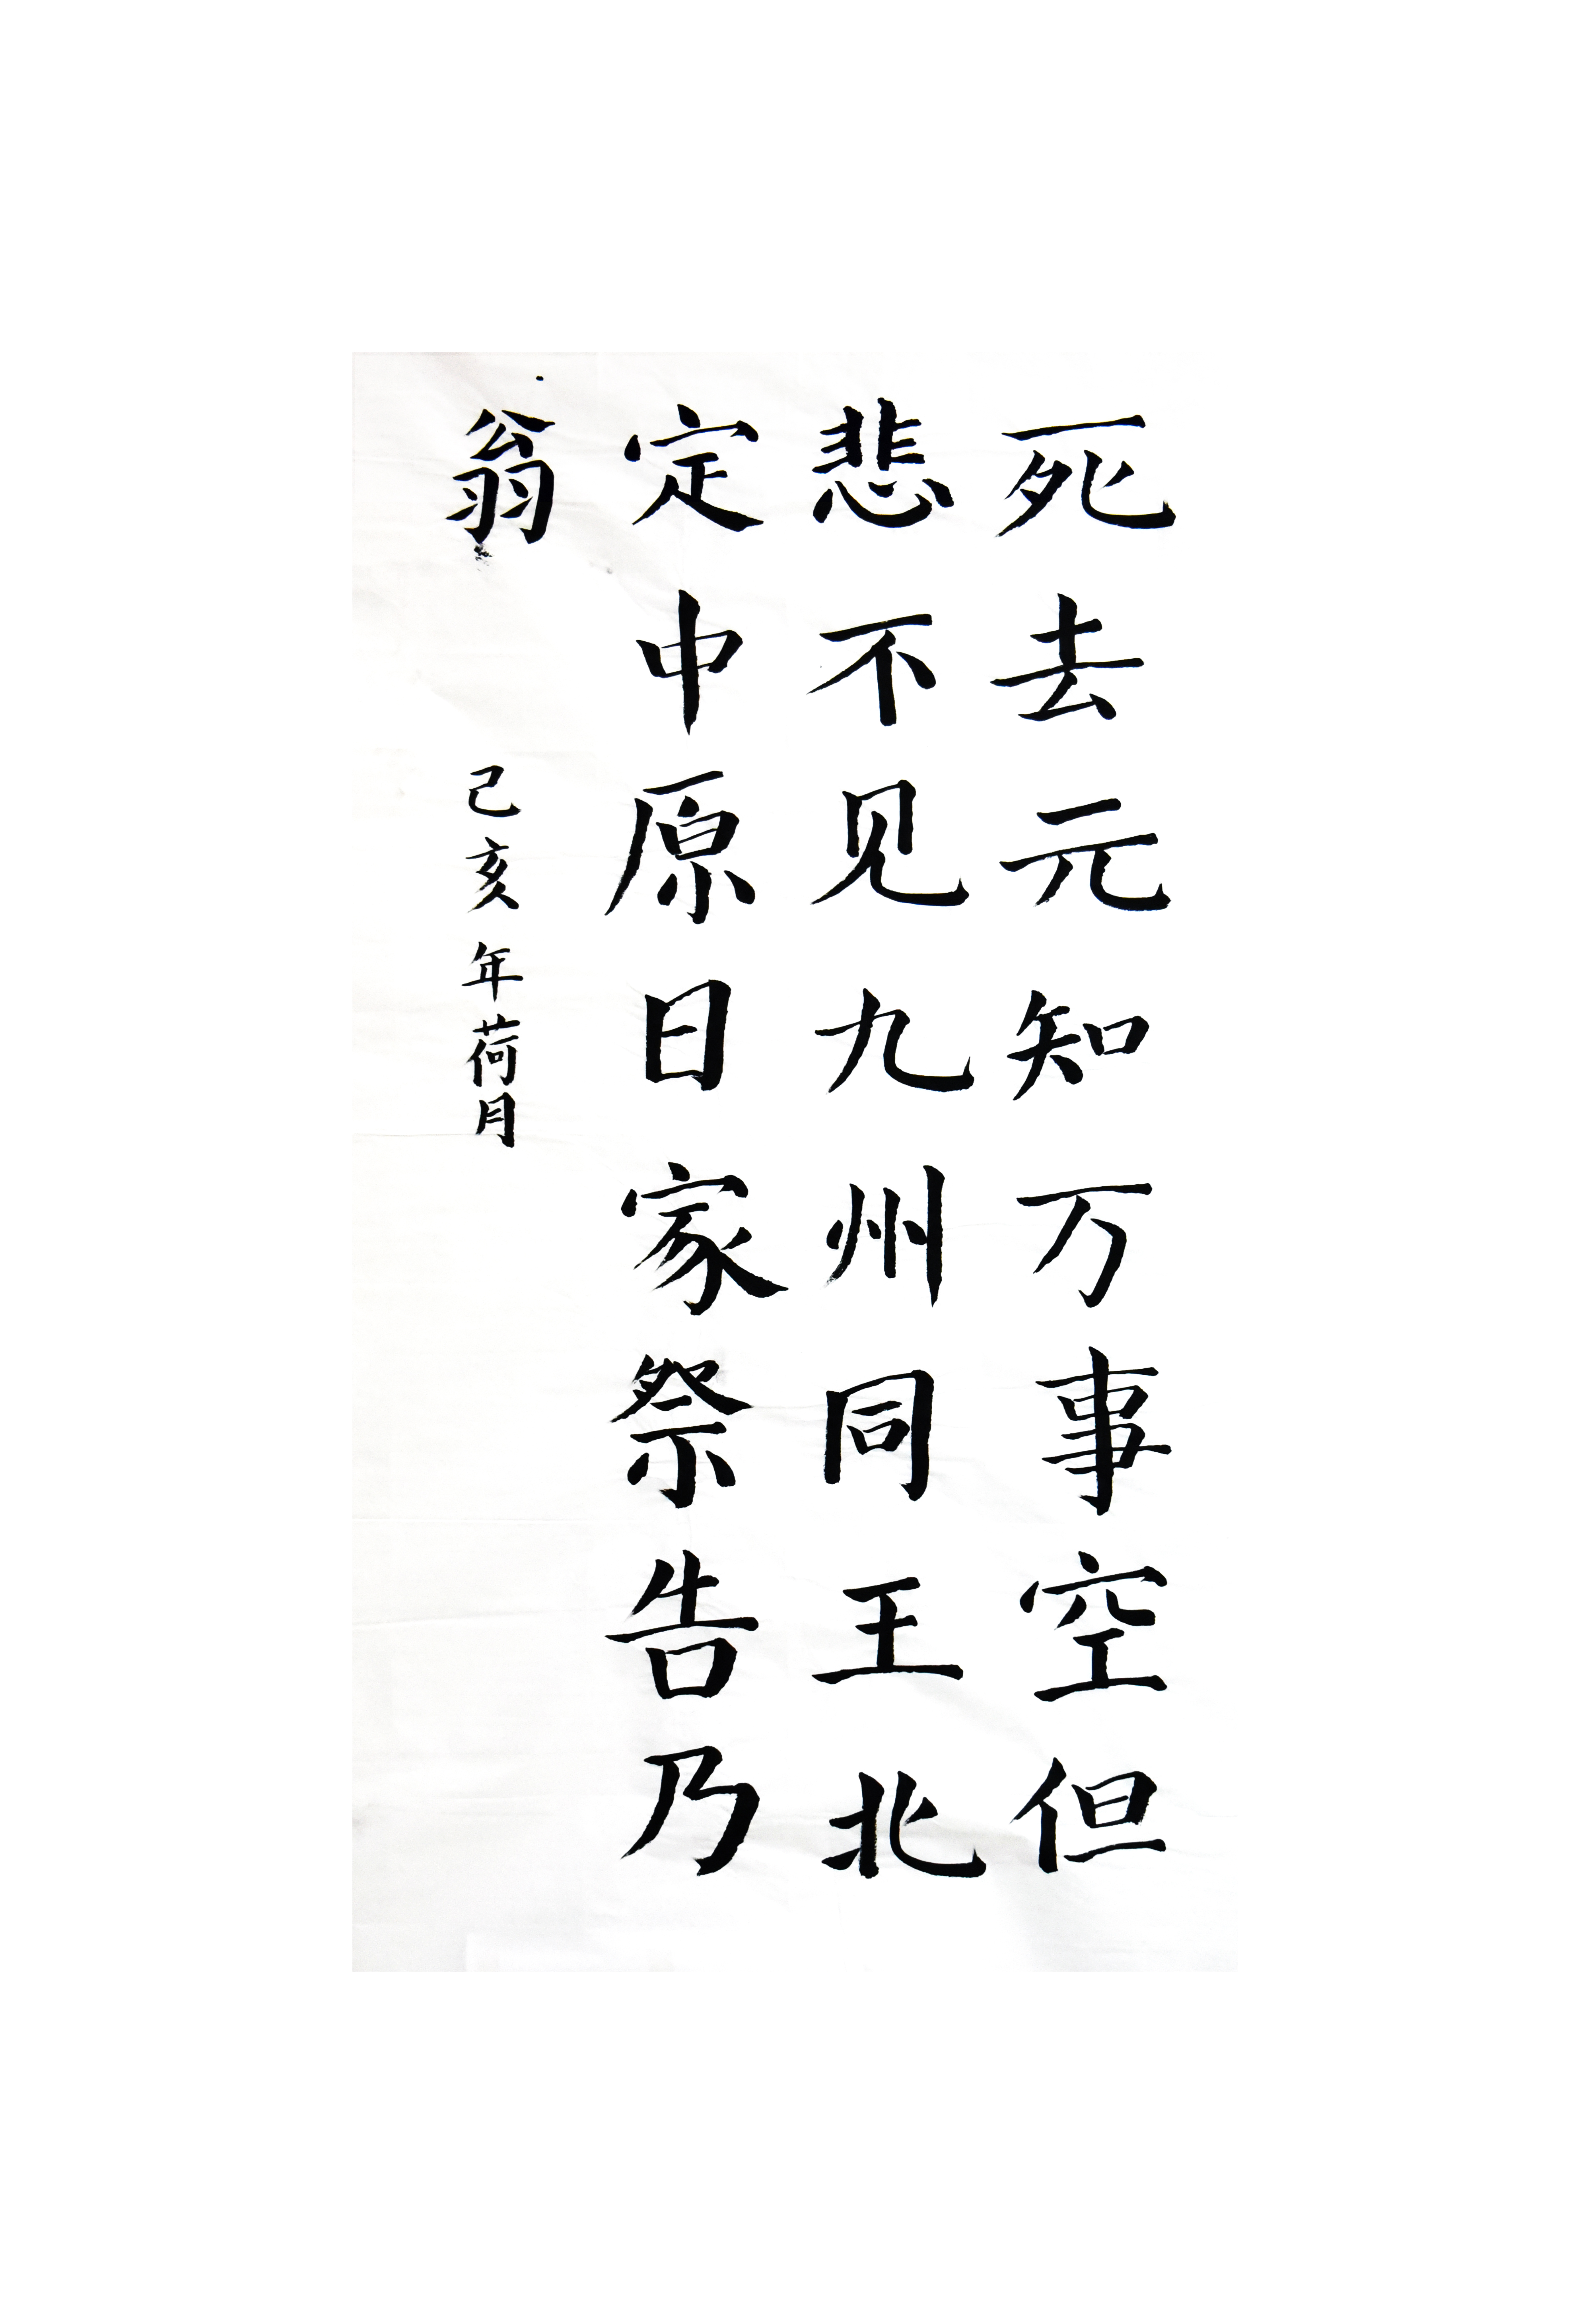 死去元知万事空但
悲不见九州同王北
定中原日家祭告乃
翁
己亥年荷月